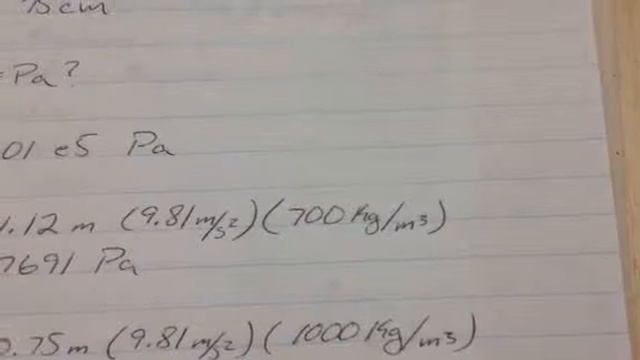 75cm
= Pa?
01 e5 Pa
1.12 m (9.81 m/s²) (700 Kg/m³)
7691 Pa
0.75 m (9.81 m/s²) (1000 Kg/m³)